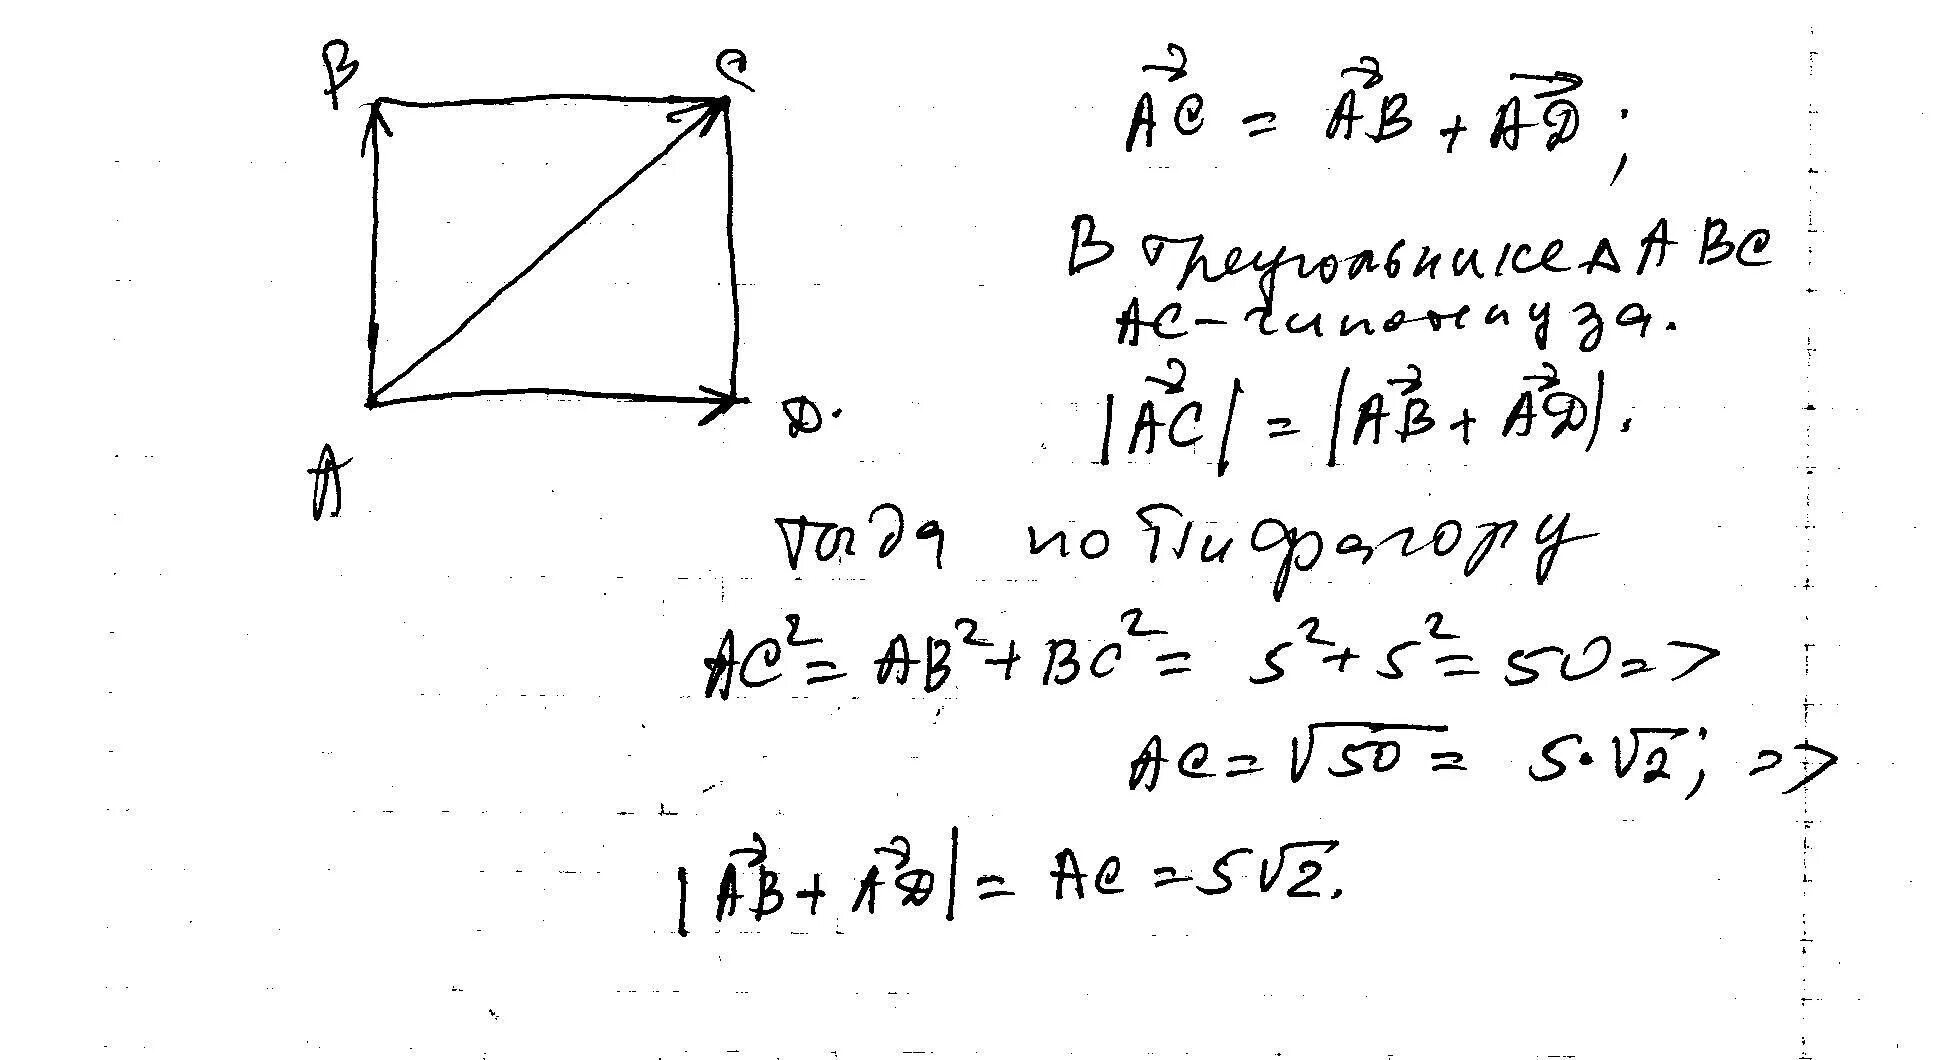 B C
A D.
AC⃗ = AB⃗ + AD⃗ ;
В треугольнике Δ ABC
AC – гипотенуза.
|AC⃗| = |AB⃗ + AD⃗|.
тогда по Пифагору
AC² = AB² + BC² = 5² + 5² = 50 =>
AC = √50 = 5·√2; =>
|AB⃗ + AD⃗| = AC = 5√2.